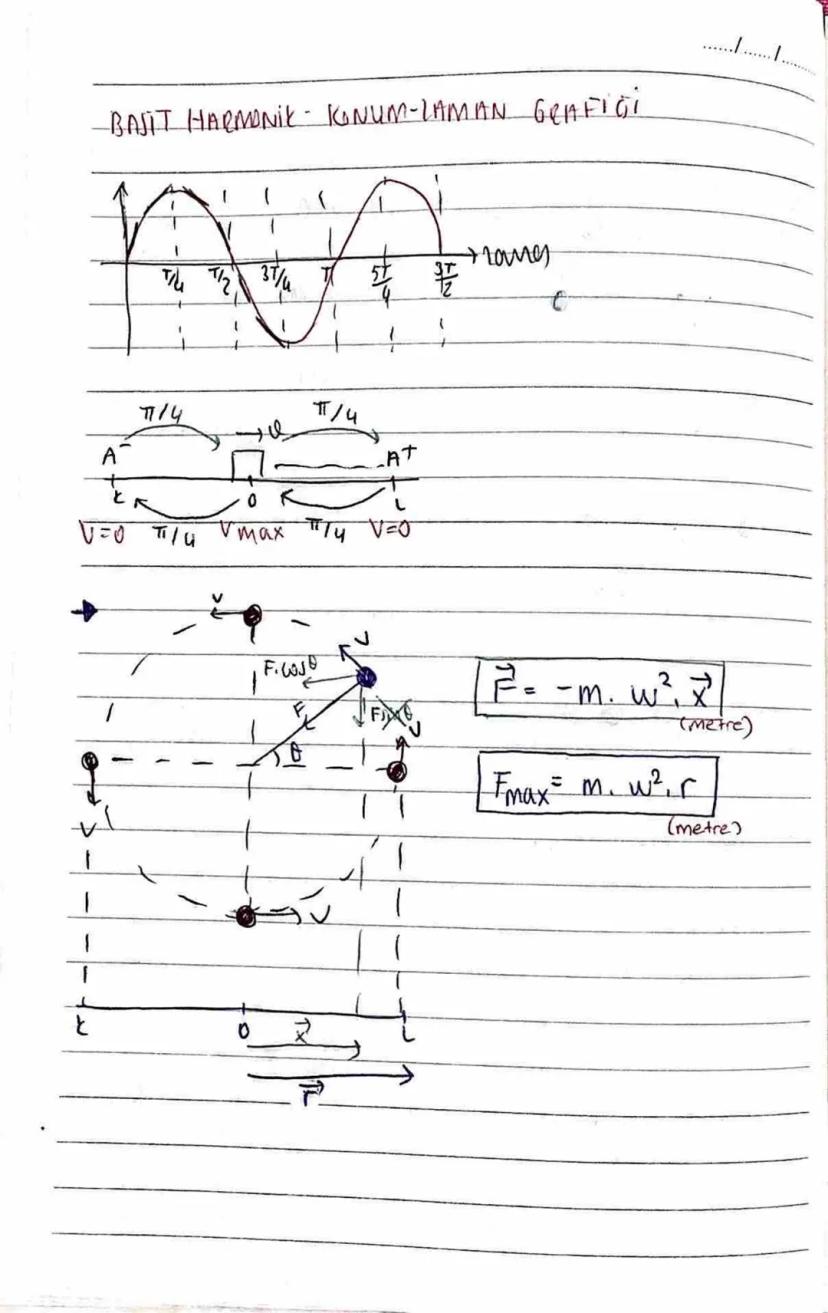 ....../....../......
BASİT HARMONİK - KONUM-ZAMAN GRAFİĞİ
T/4 T/2 3T/4 T 5T/4 3T/2 zaman
π/4 → v π/4
A⁻ A⁺
K O L
V=0 π/4 Vmax π/4 V=0
V
V
F.cosθ
F Fsinθ
θ V
V
V
K O L
x⃗
r⃗
F⃗ = -m. w². x⃗
(metre)
Fmax = m. w². r
(metre)